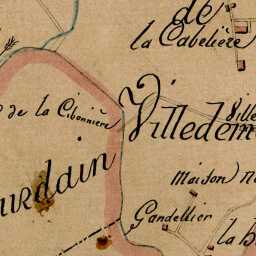 de
la Cabeliere
de la Cibonnière
Villedem
Ville
urdain
Maison n
Gandellier
la b